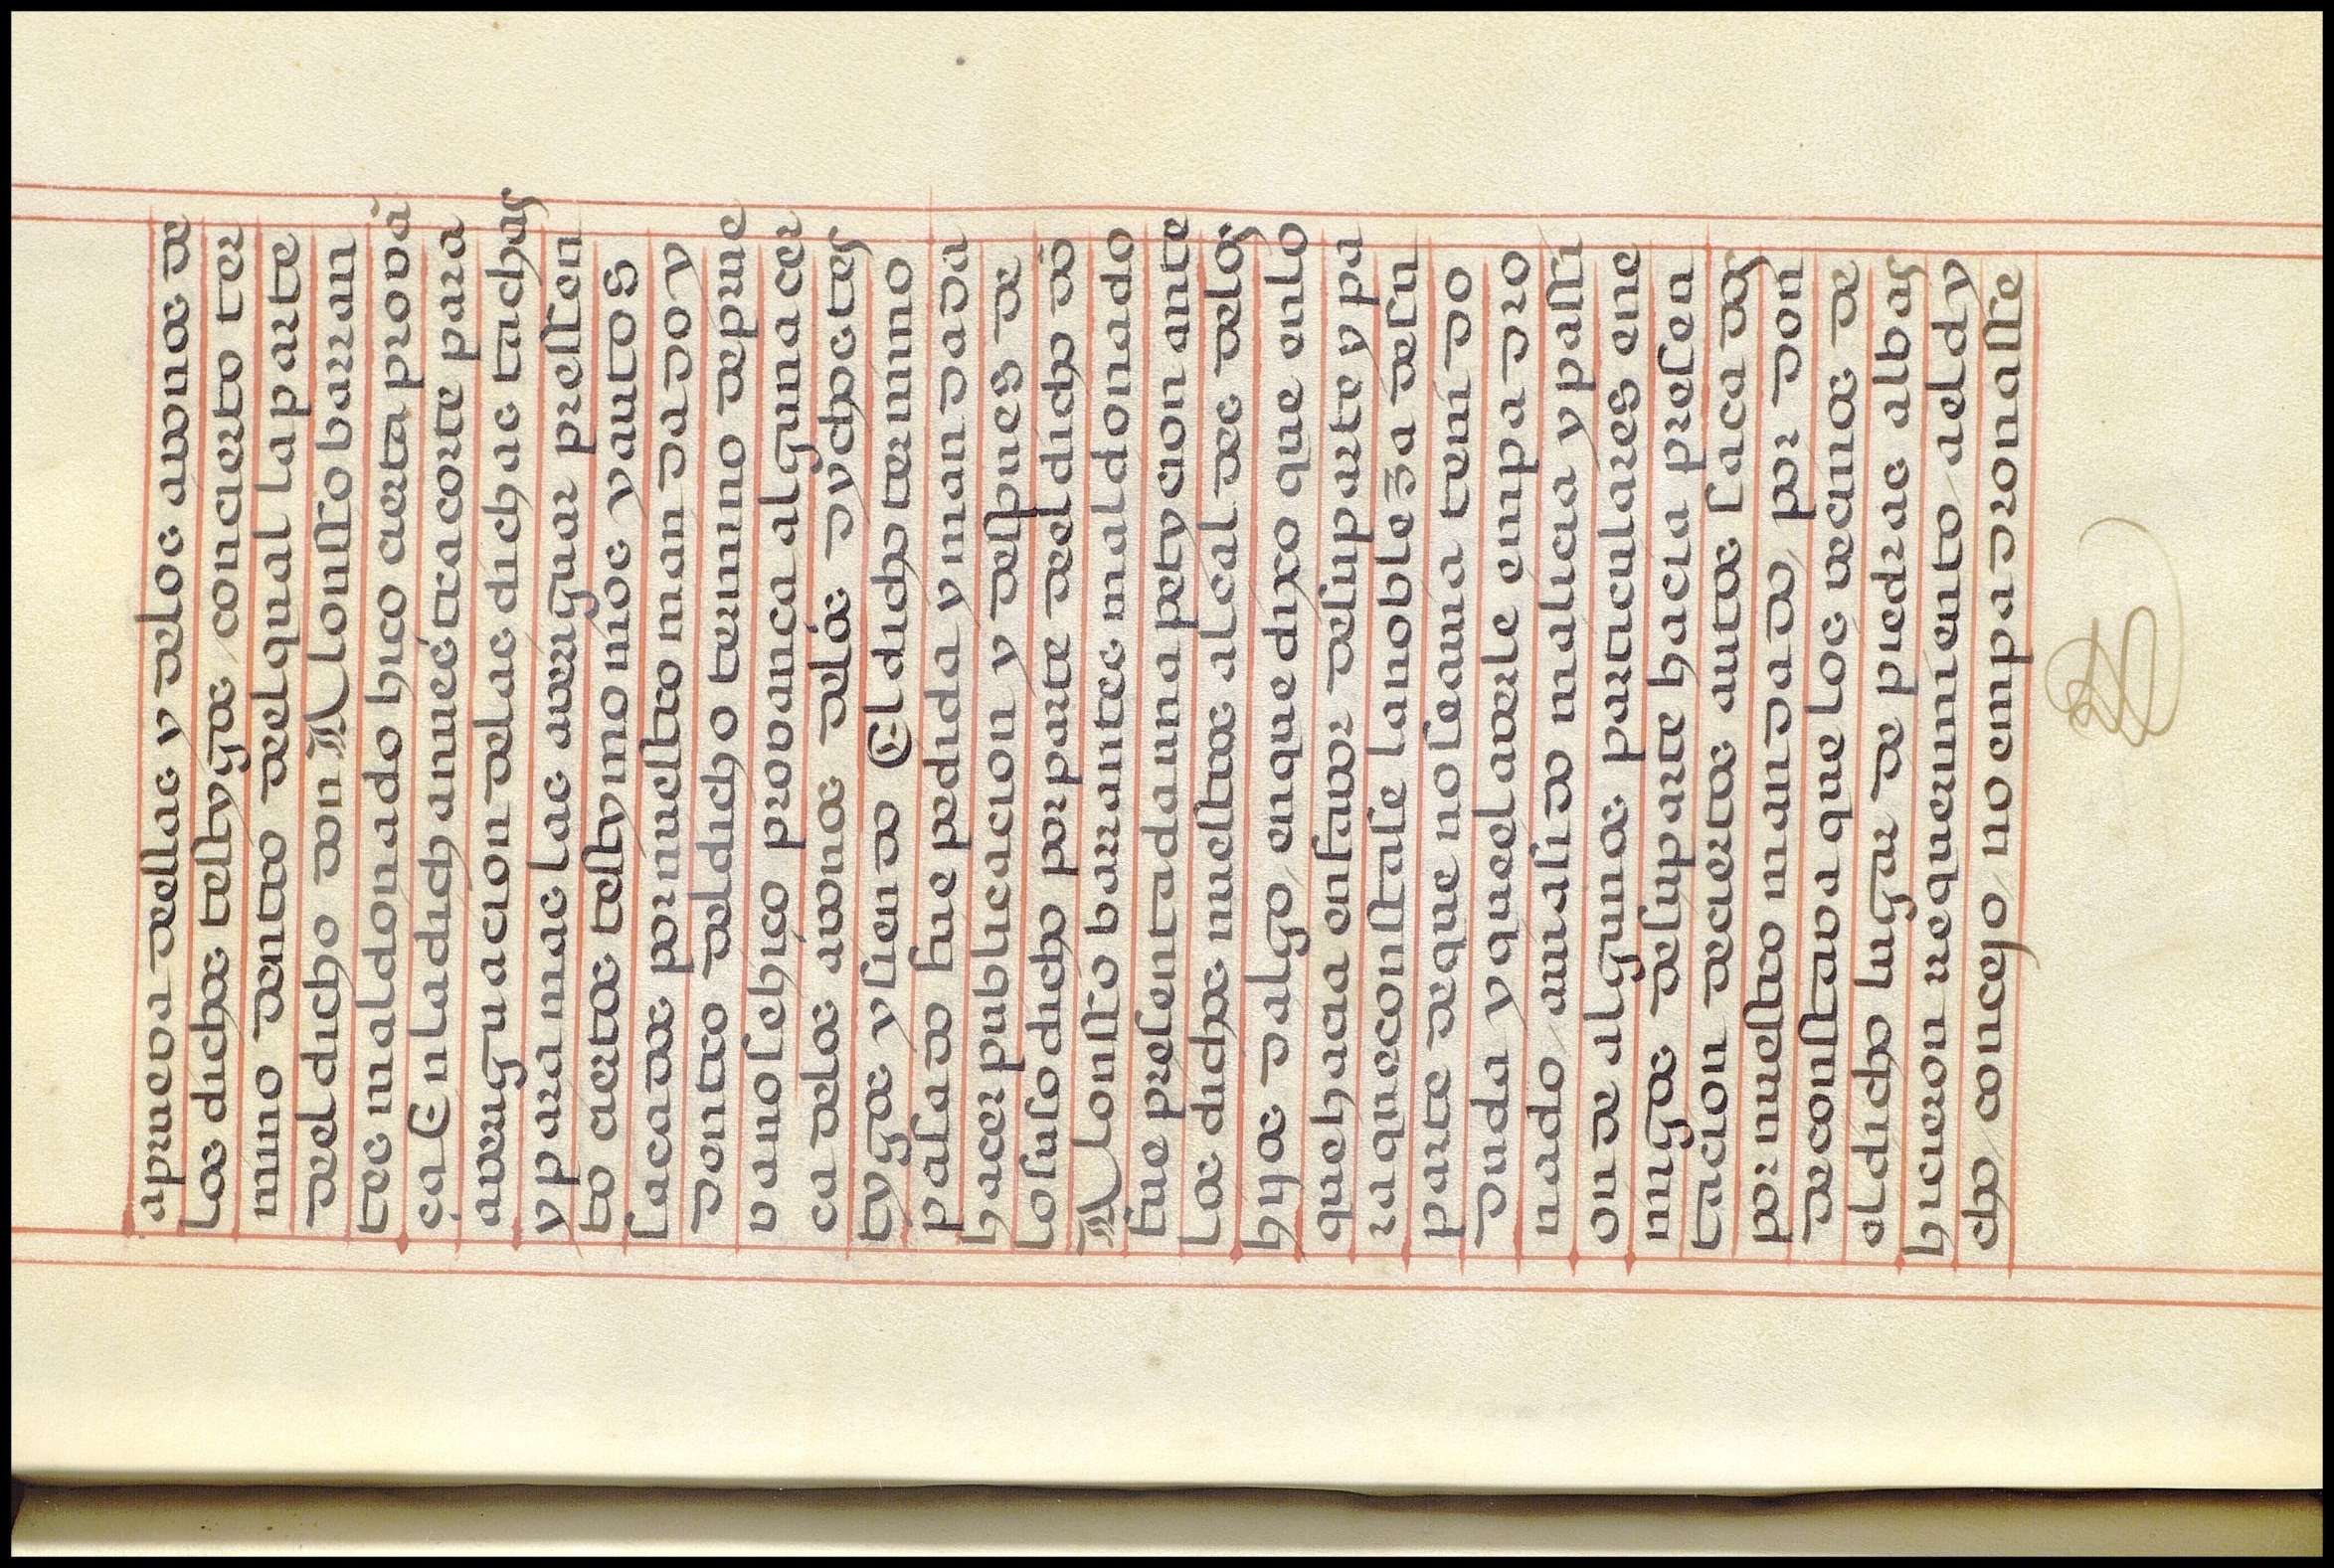 aprueva dellas y delos avonos de
los dichos testygos / con cierto ter
mino dentro del qual la parte
del dicho don Alonsso barran
tes maldonado hiço cierta provã
ça En la dicha nuestra corte para
averiguacion delas dichas tachas
y para mas las averiguar pressen
to ciertos testymonios y autos
sacados por nuestro mandado y
dentro del dicho termino depue
va no se hiço provança alguna cer
ca delos avonos delos dychos tes
tygos y siendo El dicho termino
pasado fue pedida y mandada
hacer publicacion y despues de
lo suso dicho por parte del dicho dõ
Alonsso barrantes maldonado
fue presentada una petycion ante
los dichos nuestros alcaldes delos
hijos dalgo / en que dixo que en lo
que hacia en favor de su parte y pa
ra que constase la nobleza de su
parte de que no se avia tenido
duda y que el averle empadro
nado / avia sido malicia y passi
on de algunos particulares ene
migos de su parte hacia presen
tacion de ciertos autos sacados
por nuestro mandado / por don
de constava que los vecinos de
el dicho lugar de piedras albas
hicieron requerimiento / a el dy
cho / concejo / no empadronasse